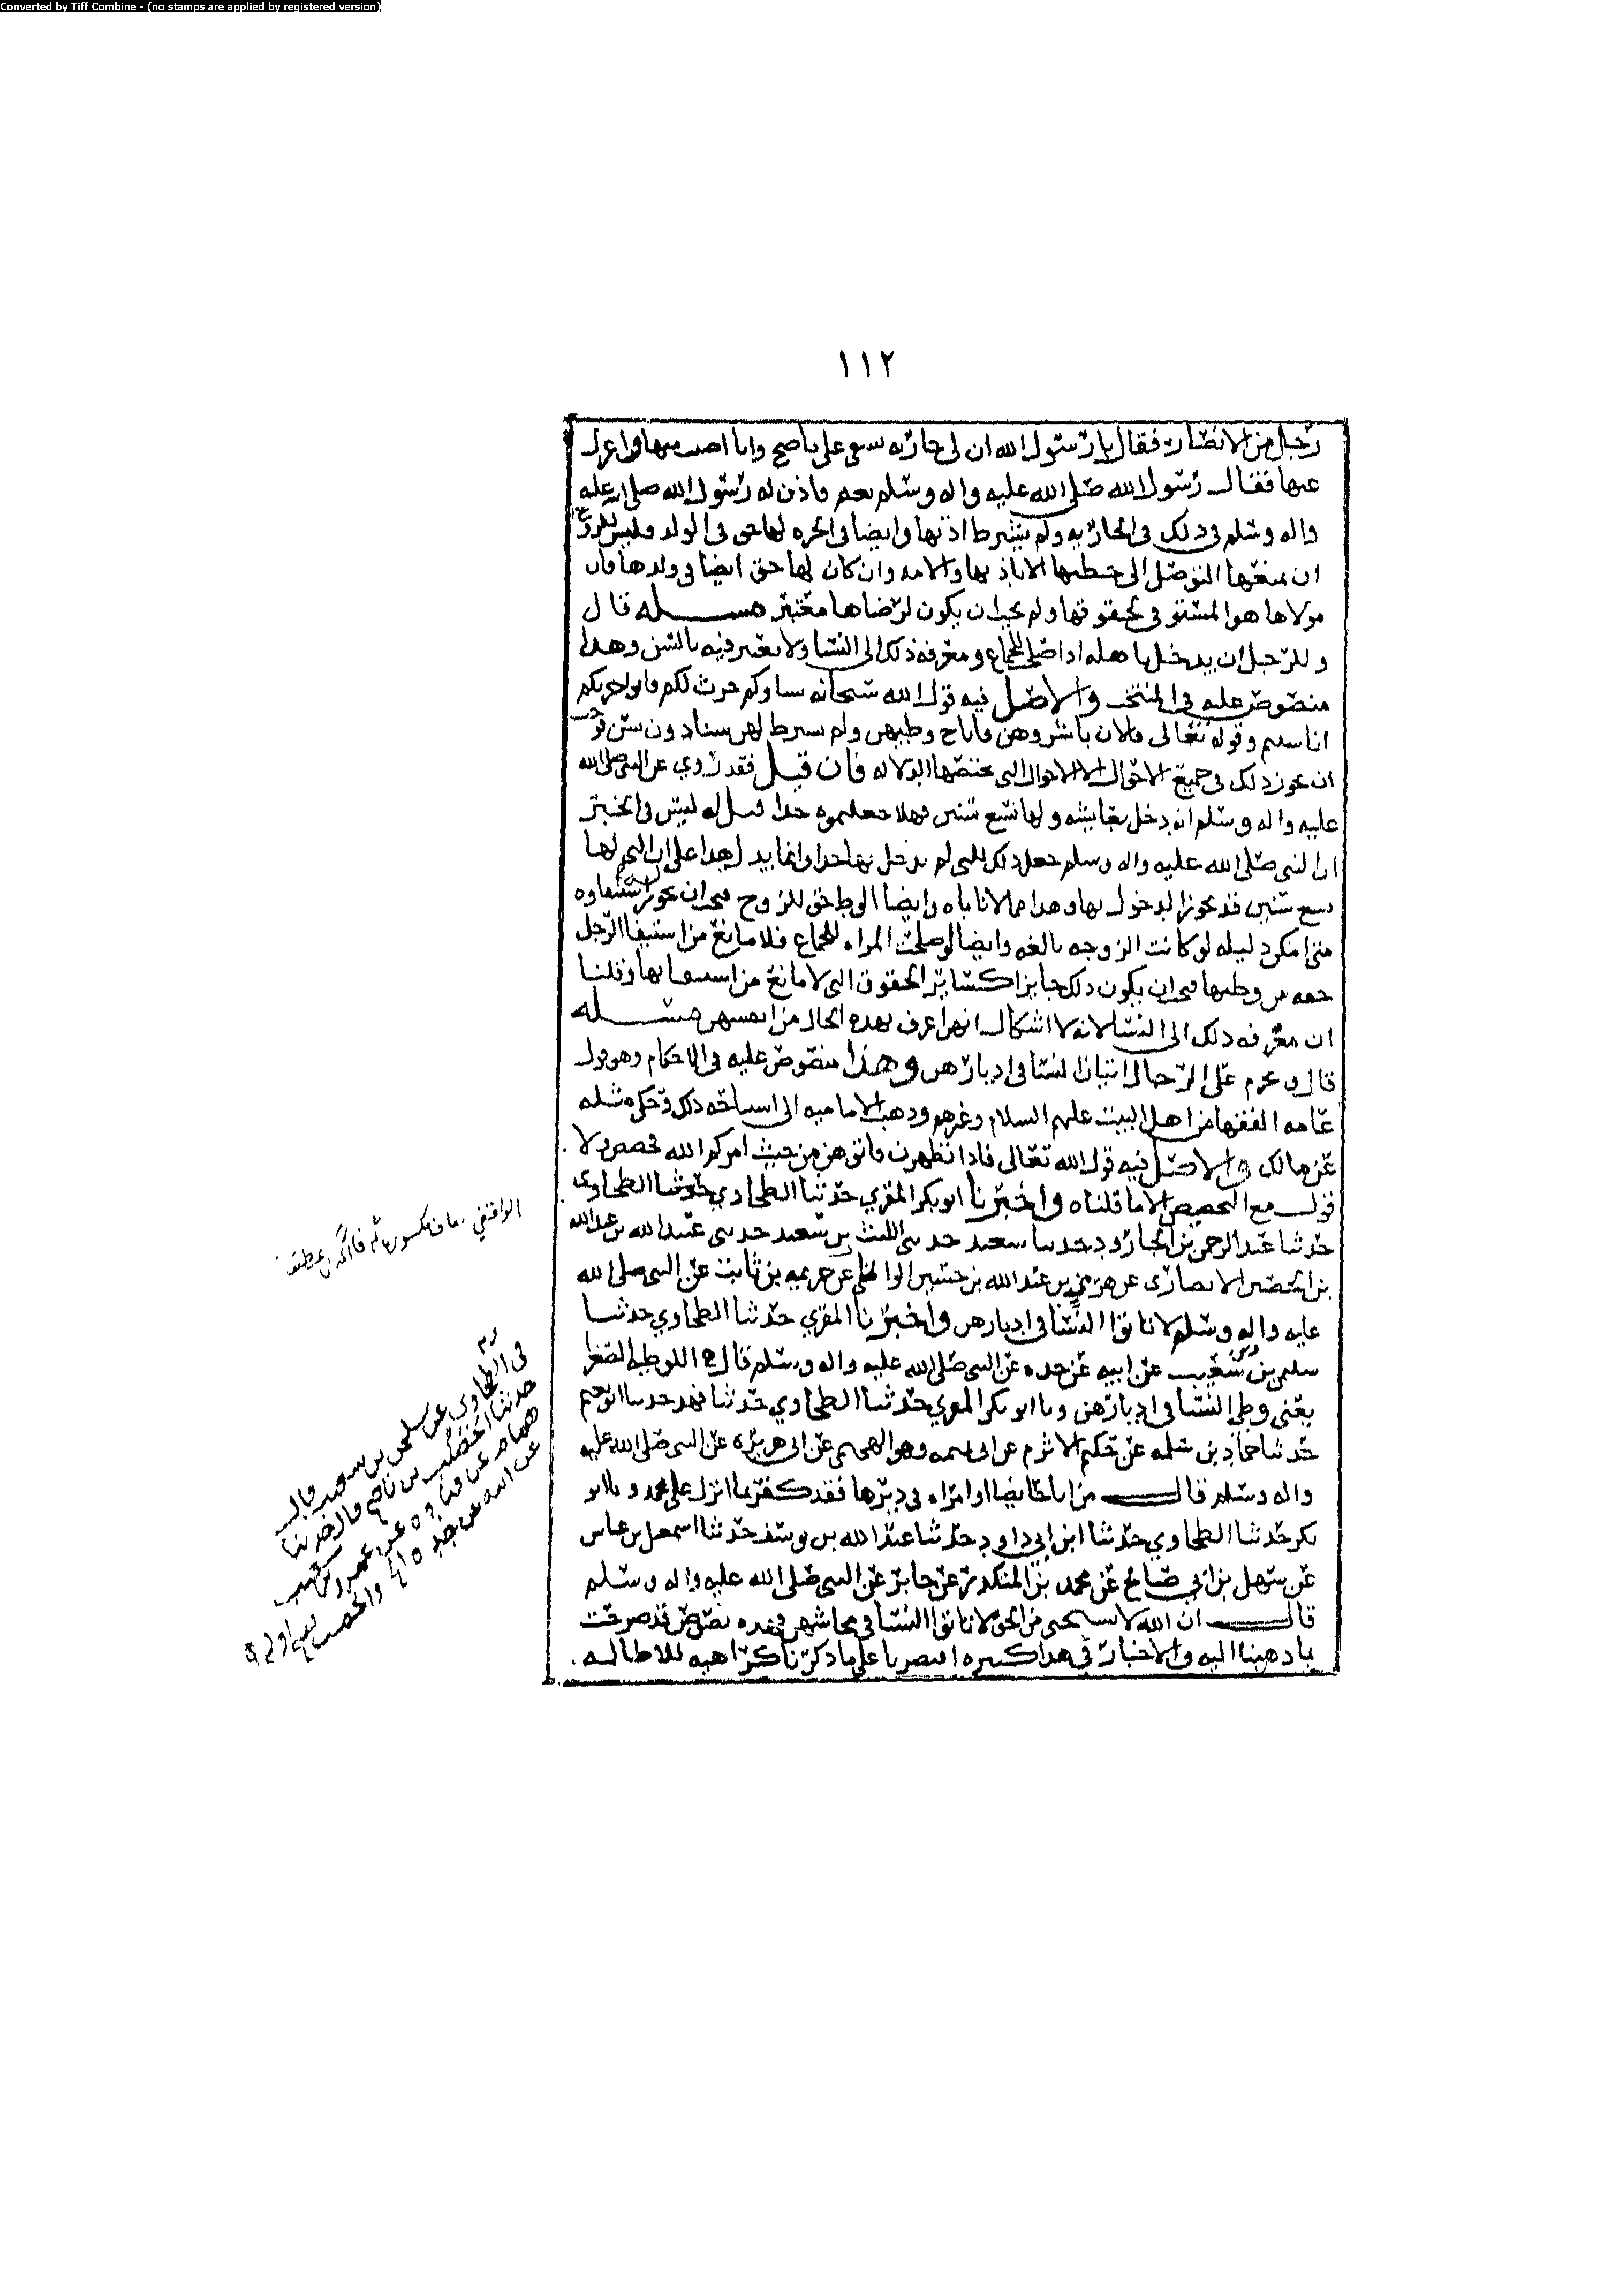 Converted by Tiff Combine - (no stamps are applied by registered version)
١١٢
رجل من الانصار فقال يا رسول الله ان لي جاريه تسعى على ناضح وانا اصيب منها واعزل
عنها فقال رسول الله صلى الله عليه واله وسلم نعم فاذن له رسول الله صلى الله عليه
واله وسلم في ذلك في الجاريه ولم يشترط اذنها وايضا في الحره لها حق في الولد وليس للزوج
ان يمنعها التوصل الى حظها الا باذنها والامه وان كان لها حق ايضا في ولدها فان
مولاها هو المستوفي لحقوقها ولم يجب ان يكون لرضاها معتبر مسله قال
وللرجل ان يدخل باهله اذا صلحن للجماع ومعرفه ذلك الى النسا ولا يعتبر فيه بالسن وهذا
منصوص عليه في المنتخب والاصل فيه قول الله سبحانه نساوكم حرث لكم فاتوا حرثكم
انا شيتم وقوله تعالى فالان باشروهن فاباح وطيهن ولم يشترط لهن سنا دون سن فوجب
ان يجوز ذلك في جميع الاحوال الا الاحوال التي يختصها الدلاله فان قيل فقد روي عن النبي صلى الله
عليه واله وسلم انه دخل بعايشه ولها تسع سنين فهلا جعلتموه حدا قيل له ليس في الخبر
ان النبي صلى الله عليه واله وسلم جعل ذلك للتي لم يدخل بها حدا وانما يدل هذا على ان التي لها
تسع سنين قد يجوز الدخول بها وهذا مما لا ناباه وايضا الوطي حق للزوج فيجب ان يجوز له استيفاوه
متى امكن دليله لو كانت الزوجه بالغه وايضا لو صلحت المراه للجماع فلا مانع من استيفا الرجل
حقه من وطيها فيجب ان يكون ذلك جايزا كساير الحقوق التي لا مانع من استيفايها وقلنا
ان معرفه ذلك الى النسا لانه لا اشكال انهن اعرف بهذه الحال من انفسهن مسله
قال ويحرم على الرجال اتيان النسا في ادبارهن وهذا منصوص عليه في الاحكام وهو قول
عامه الفقها من اهل البيت عليهم السلام وغيرهم وذهب الاماميه الى استباحه ذلك وحكي مثله
عن مالك والاصل فيه قول الله تعالى فاذا تطهرن فاتوهن من حيث امركم الله فخصص ولا
قول مع التخصيص الا ما قلناه واخبرنا ابو بكر المقري حدثنا الطحاوي حدثنا الطحاوي
حدثنا عبد الرحمن بن الجارود حدثنا سعيد حدثني الليث بن سعيد حدثني عبد الله بن عبد الله
بن الحضين الانصاري عن هرمي بن عبد الله بن حسين الوايلي عن خزيمه بن ثابت عن النبي صلى الله
عليه واله وسلم لا تاتوا النسا في ادبارهن واخبرنا المقري حدثنا الطحاوي حدثنا
سلمن بن شعيب عن ابيه عن جده عن النبي صلى الله عليه واله وسلم قال هي اللوطيه الصغرا
يعني وطي النسا في ادبارهن ونا ابو بكر المقري حدثنا الطحاوي حدثنا فهد حدثنا ابو نعيم
حدثنا حماد بن سلمه عن حكيم الاثرم عن ابي تميمه وهو الهجيمي عن ابي هريره عن النبي صلى الله عليه
واله وسلم قال من اتا حايضا او امراه في دبرها فقد كفر بما انزل على محمد ونا ابو
بكر حدثنا الطحاوي حدثنا ابن ابي داود حدثنا عبد الله بن يوسف حدثنا اسمعيل بن عياش
عن سهل بن ابي صالح عن محمد بن المنكدر عن جابر عن النبي صلى الله عليه واله وسلم
قال ان الله لا يستحيي من الحق لا تاتوا النسا في محاشهن فهذه نصوص قد صرحت
بما ذهبنا اليه والاخبار في هذا كثيره اقتصرنا على ما ذكرنا كراهيه للاطاله .
في الطحاوي عن سلمن بن شعيب قال
حدثنا الخصيب بن ناصح قال حدثنا
همام عن قتاده عن عمرو بن شعيب
عن ابيه عن جده